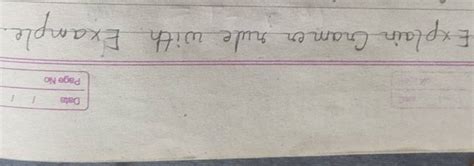 Date / /
Page No
Explain Cramer rule with Example.